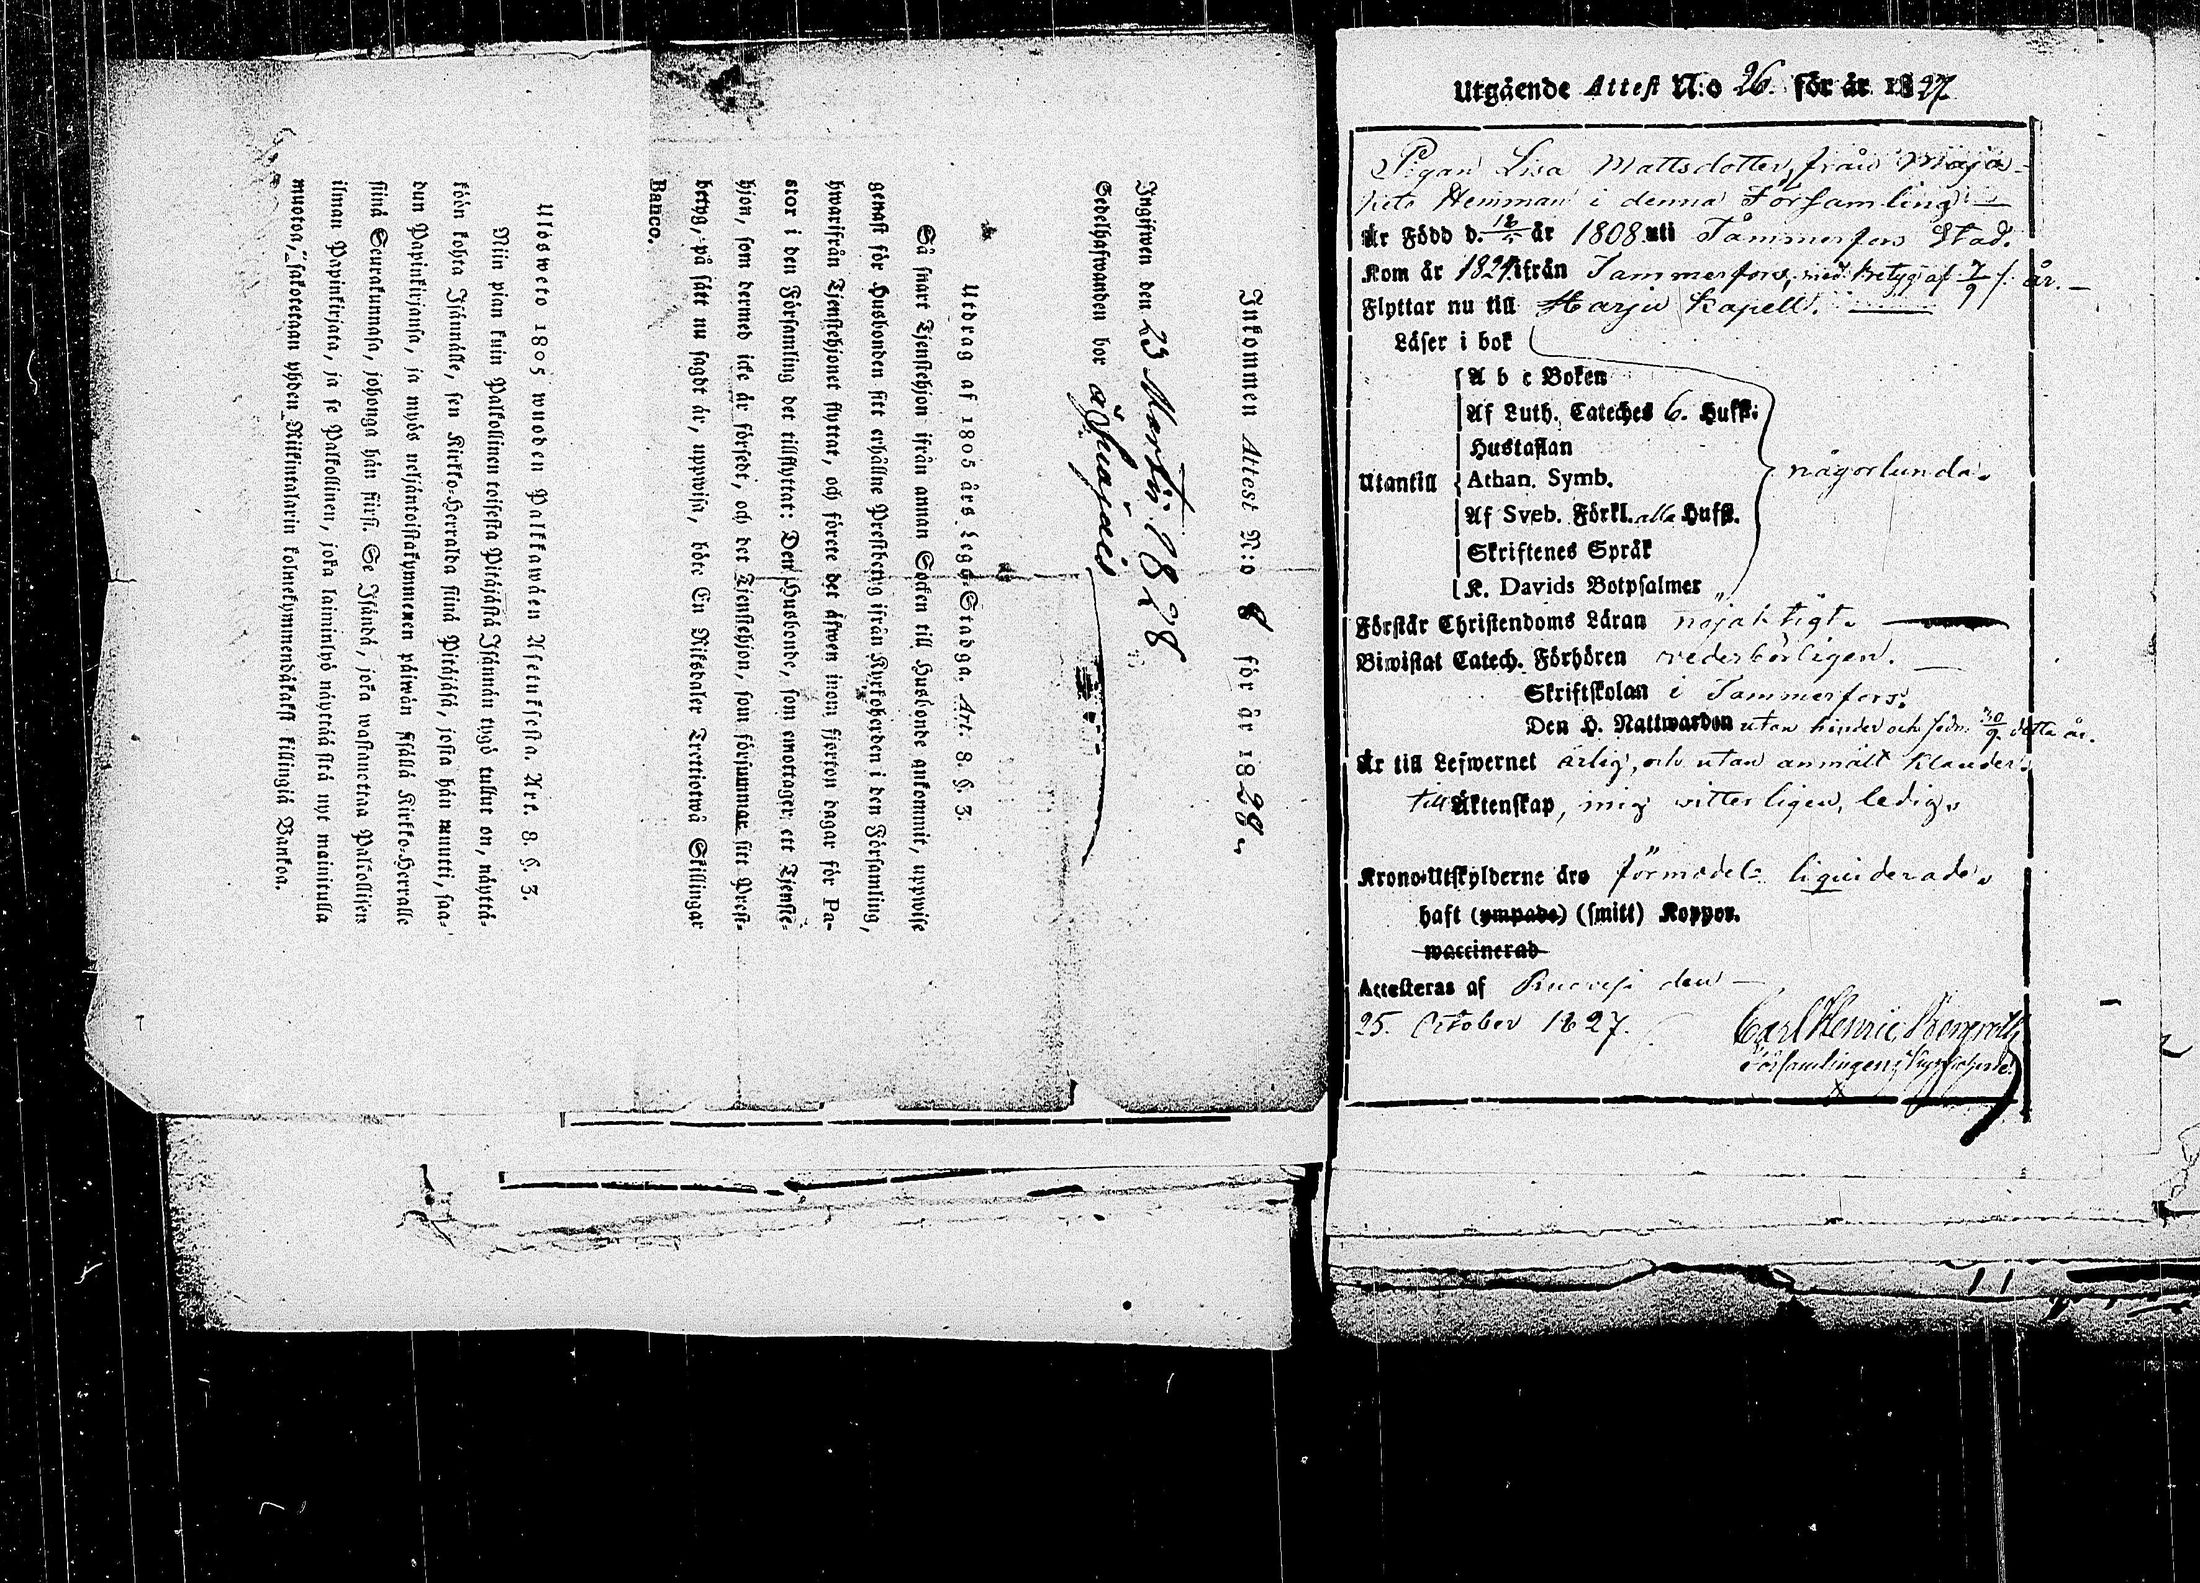 Inkommen Attest N:o 8 för år 1828.
Ingifwen den 23 Martii 1828
Sedelhafwanden bor å
Utdrag af 1805 års Lego-Stadga. Art. 8. §. 3.
Så snart Tjenstehjon ifrån annan Socken till Husbonde ankommit, uppwise
genast för Husbonden sitt erhållne Prestbetyg ifrån Kyrkoherden i den Församling,
hwarifrån Tjenstehjonet flyttat, och förete det äfwen inom fjorton dagar för Pa-
stor i den Församling det tillflyttat: Den Husbonde, som emottager ett Tjenste-
hjon, som dermed icke är försedt, och det Tjenstehjon, som försummar sitt Prest-
betyg, på sätt nu sagdt är, uppwisa, böte En Riksdaler Trettiotwå Skillingar
Banco.
Ulosweto 1805 wuoden Palkkawäen Asetuksesta. Art. 8. §. 3.
Niin pian kuin Palkollinen toisesta Pitäjästä Isännän tygö tullut on, näyttä-
köön kohta Isännälle, sen Kirkko-Herralda siinä Pitäjäsä, josta hän muutti, saa-
dun Papinkirjansa, ja myös neljäntoistakymmenen päiwän sisällä Kirkko-Herralle
siinä Seurakunnasa, johonga hän siirsi. Se Isändä, joka wastanottaa Palkollisen
ilman Papinkirjata, ja se Palkollinen, joka laiminlyö näyttää sitä nyt mainitulla
muotoa, sakotetaan yhden Riikintalarin kolmekymmendäkaksi killingiä Bankoa.
Utgående Attest N:o 26. för år 1827
Pigan Lisa Mattsdotter, från Maja-
Hemman i denna Församling
Är Född d. 18/5 år 1808 uti Tammerfors Stad.
Kom år 1827 ifrån Tammerfors, med betyg af 7/9 s. år.
Flyttar nu till Harju Kapell.
Läser i bok
A b c Boken
Af Luth. Cateches 6. Hufst.
Hustaflan
Utantill Athan. Symb. någorlunda.
Af Sveb. Förkl. alla Hufst.
Skriftenes Språk
K. Davids Botpsalmer
Förstår Christendoms Läran nöjaktigt.
Biwistat Catech. Förhören vederbörligen.
Skriftskolan i Tammerfors.
Den H. Nattwarden utan hinder och sedn. 30/9 detta år.
Är till Lefwernet ärlig, och utan anmält klander.
till Äktenskap, mig witterligen, ledig.
Krono-Utskylderne äro förmodel: liquiderade.
haft (ympade) (smitt) Koppor.
waccinerad
Attesteras af Ruovesi den
25. October 1827. Carl Henric Bergroth
Församlingens Kyrkoherde.